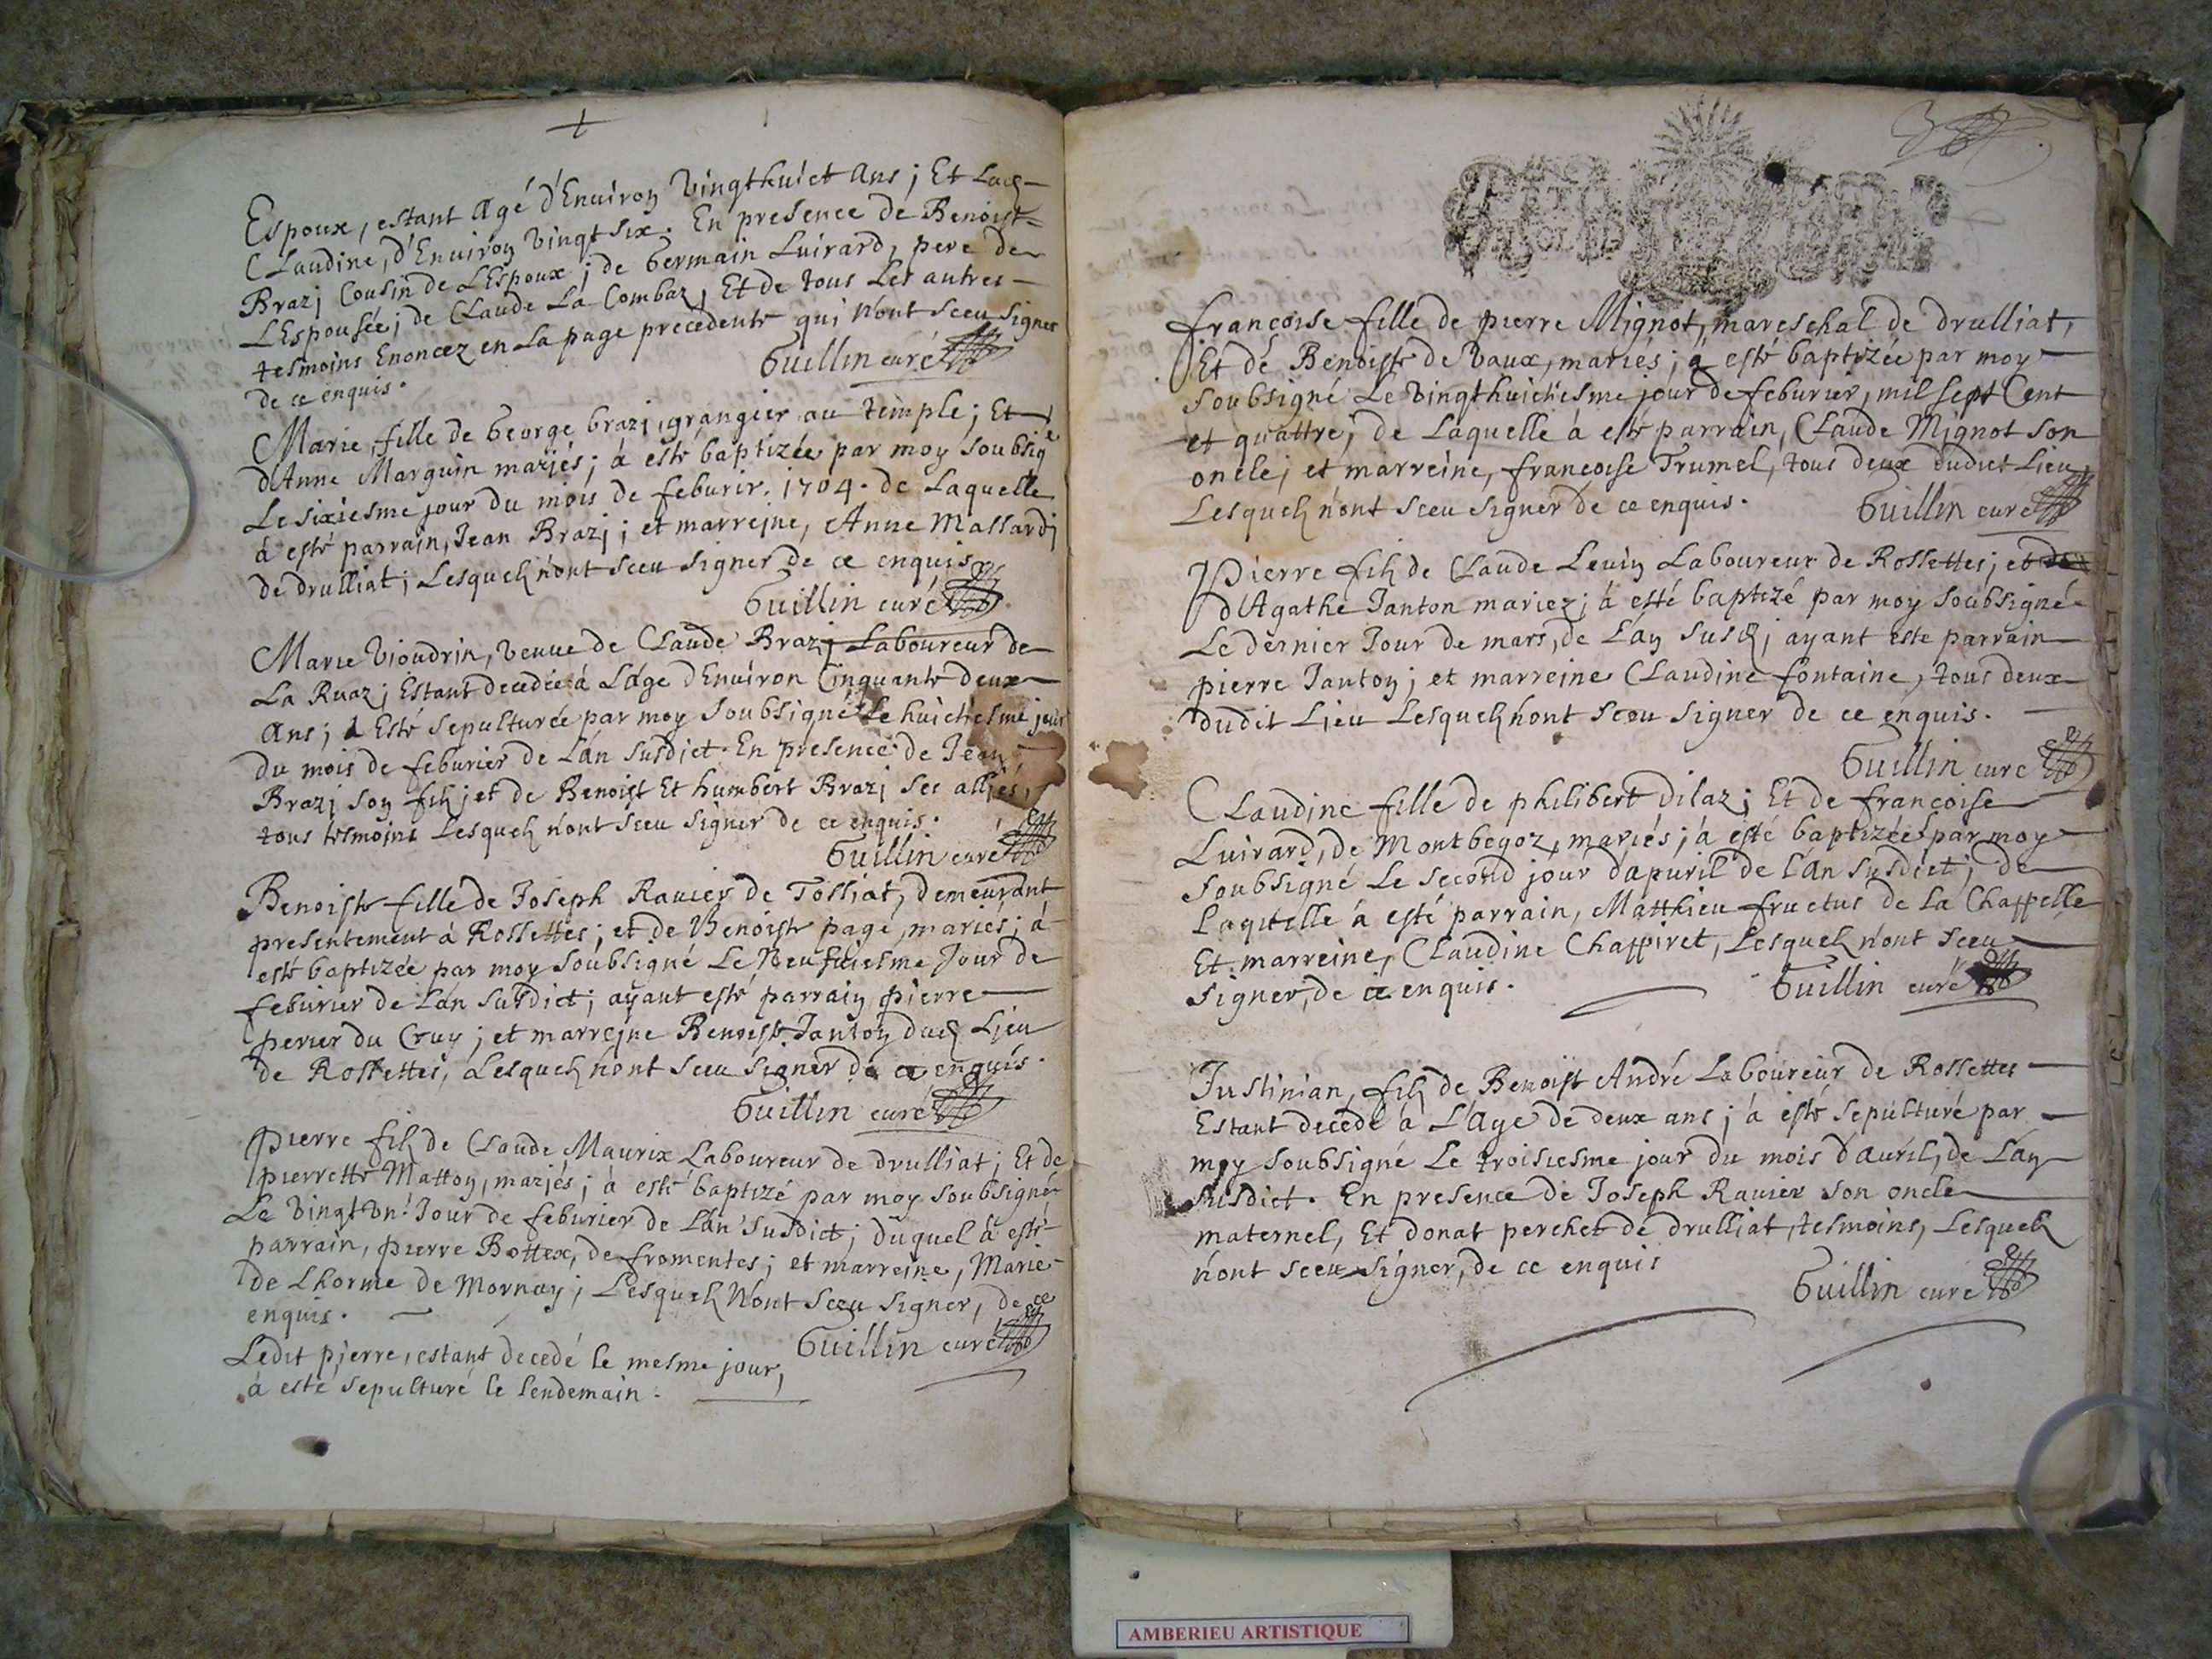 Espoux, estant agé d'Enuiron Vingthuict ans; Et Lad.
Claudine, d'Enuiron Vingt six. En presence de Benoist
Brazj Cousin de L'Espoux; de Germain Luirard, pere de
L'Espousée; de Claude La Combaz, Et de tous Les autres
tesmoins Enoncez en La page precedente qui n'ont sceu signer
de ce enquis.
Guillin curé
Marie, fille de George brazj, grangier au temple; Et
d'Anne Marguin mariés; à esté baptizée par moy soubsigé
Le sixiesme jour du mois de feburir. 1704. de Laquelle
à esté parrain, Jean Brazj; et marrejne, Anne Massardj
de drulliat; Lesquels n'ont sceu signer de ce enquis
Guillin curé
Marie Vioudrin, Veuue de Claude Brazj Laboureur de
La Ruaz; Estant decedée à L'age d'Enuiron Cinquante deux
Ans; à Esté sepulturée par moy soubsigné Le huictiesme jour
du mois de feburier de L'an susdict. En presence de Jean
Brazj son fils; et de Benoist Et humbert Brazj ses alliés,
tous tesmoins Lesquels n'ont sceu signer de ce enquis.
Guillin curé
Benoiste fille de Joseph Rauier de Tossiat, demeurant
presentement à Rossettes; et de Benoiste page, mariés; à
esté baptizée par moy soubsigné Le Neufuiesme Jour de
feburier de L'an susdict; ayant esté parrain pierre
perier du Cruy; et marrejne Benoiste Janton dud. Lieu
de Rossettes, Lesquels n'ont sceu signer de ce enquis.
Guillin curé
pierre fils de Claude Maurix Laboureur de drulliat; Et de
pierrette Matton, mariés; à esté baptizé par moy soubsigné
Le Vingt Vn. Jour de feburier de L'an susdict; duquel à esté
parrain, pierre Bottex, de fromentes; et marreine, Marie
de Lhorme de Mornay; Lesquels N'ont sceu signer, de ce
enquis.
Guillin curé
Ledit pierre, estant decedé le mesme jour,
à esté sepulturé le lendemain.
3
françoise fille de pierre Mignot, mareschal de drulliat,
Et de Benoiste de Vaux, mariés; à esté baptizée par moy
soubsigné Le Vingthuictiesme jour de feburier, mil sept Cent
et quattre; de Laquelle à esté parrain, Claude Mignot son
oncle; et marreine, françoise Trumel, tous deux dudict Lieu
Lesquels n'ont sceu signer de ce enquis.
Guillin curé
Pierre fils de Claude Leuin Laboureur de Rossettes; et de
d'Agathe Janton mariez; à esté baptizé par moy soubsigné
Le dernier Jour de mars, de L'an susd.; ayant esté parrain
pierre Janton; et marreine Claudine fontaine, tous deux
dudit Lieu Lesquels n'ont sceu signer de ce enquis.
Guillin curé
Claudine fille de philibert Dilaz; Et de françoise
Luirard, de Montbegoz, mariés; à esté baptizée par moy
soubsigné Le second jour d'apuril de l'an susdict; de
laquelle à esté parrain, Matthieu fructus de La Chappelle
Et marreine, Claudine Chappiret, Lesquels n'ont sceu
signer, de ce enquis.
Guillin curé
Justinian, fils de Benoist André Laboureur de Rossettes
Estant decedé à L'Age de deux ans; à esté sepulturé par
moy soubsigné Le troisiesme jour du mois d'auril, de L'an
susdict. En presence de Joseph Rauier son oncle
maternel, Et donat perchet de drulliat, tesmoins, Lesquels
n'ont sceu signer, de ce enquis
Guillin curé
AMBERIEU ARTISTIQUE